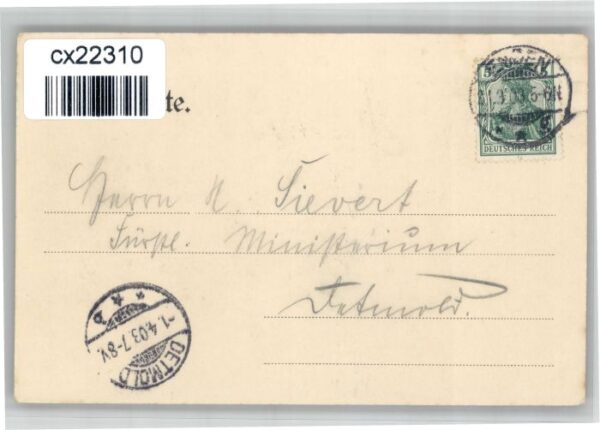 cx22310
te.
DEUTSCHES REICH
Herrn A. Sievert
Fürstl. Ministerium
Detmold.
DETMOLD
-1.4.03.7-8V.